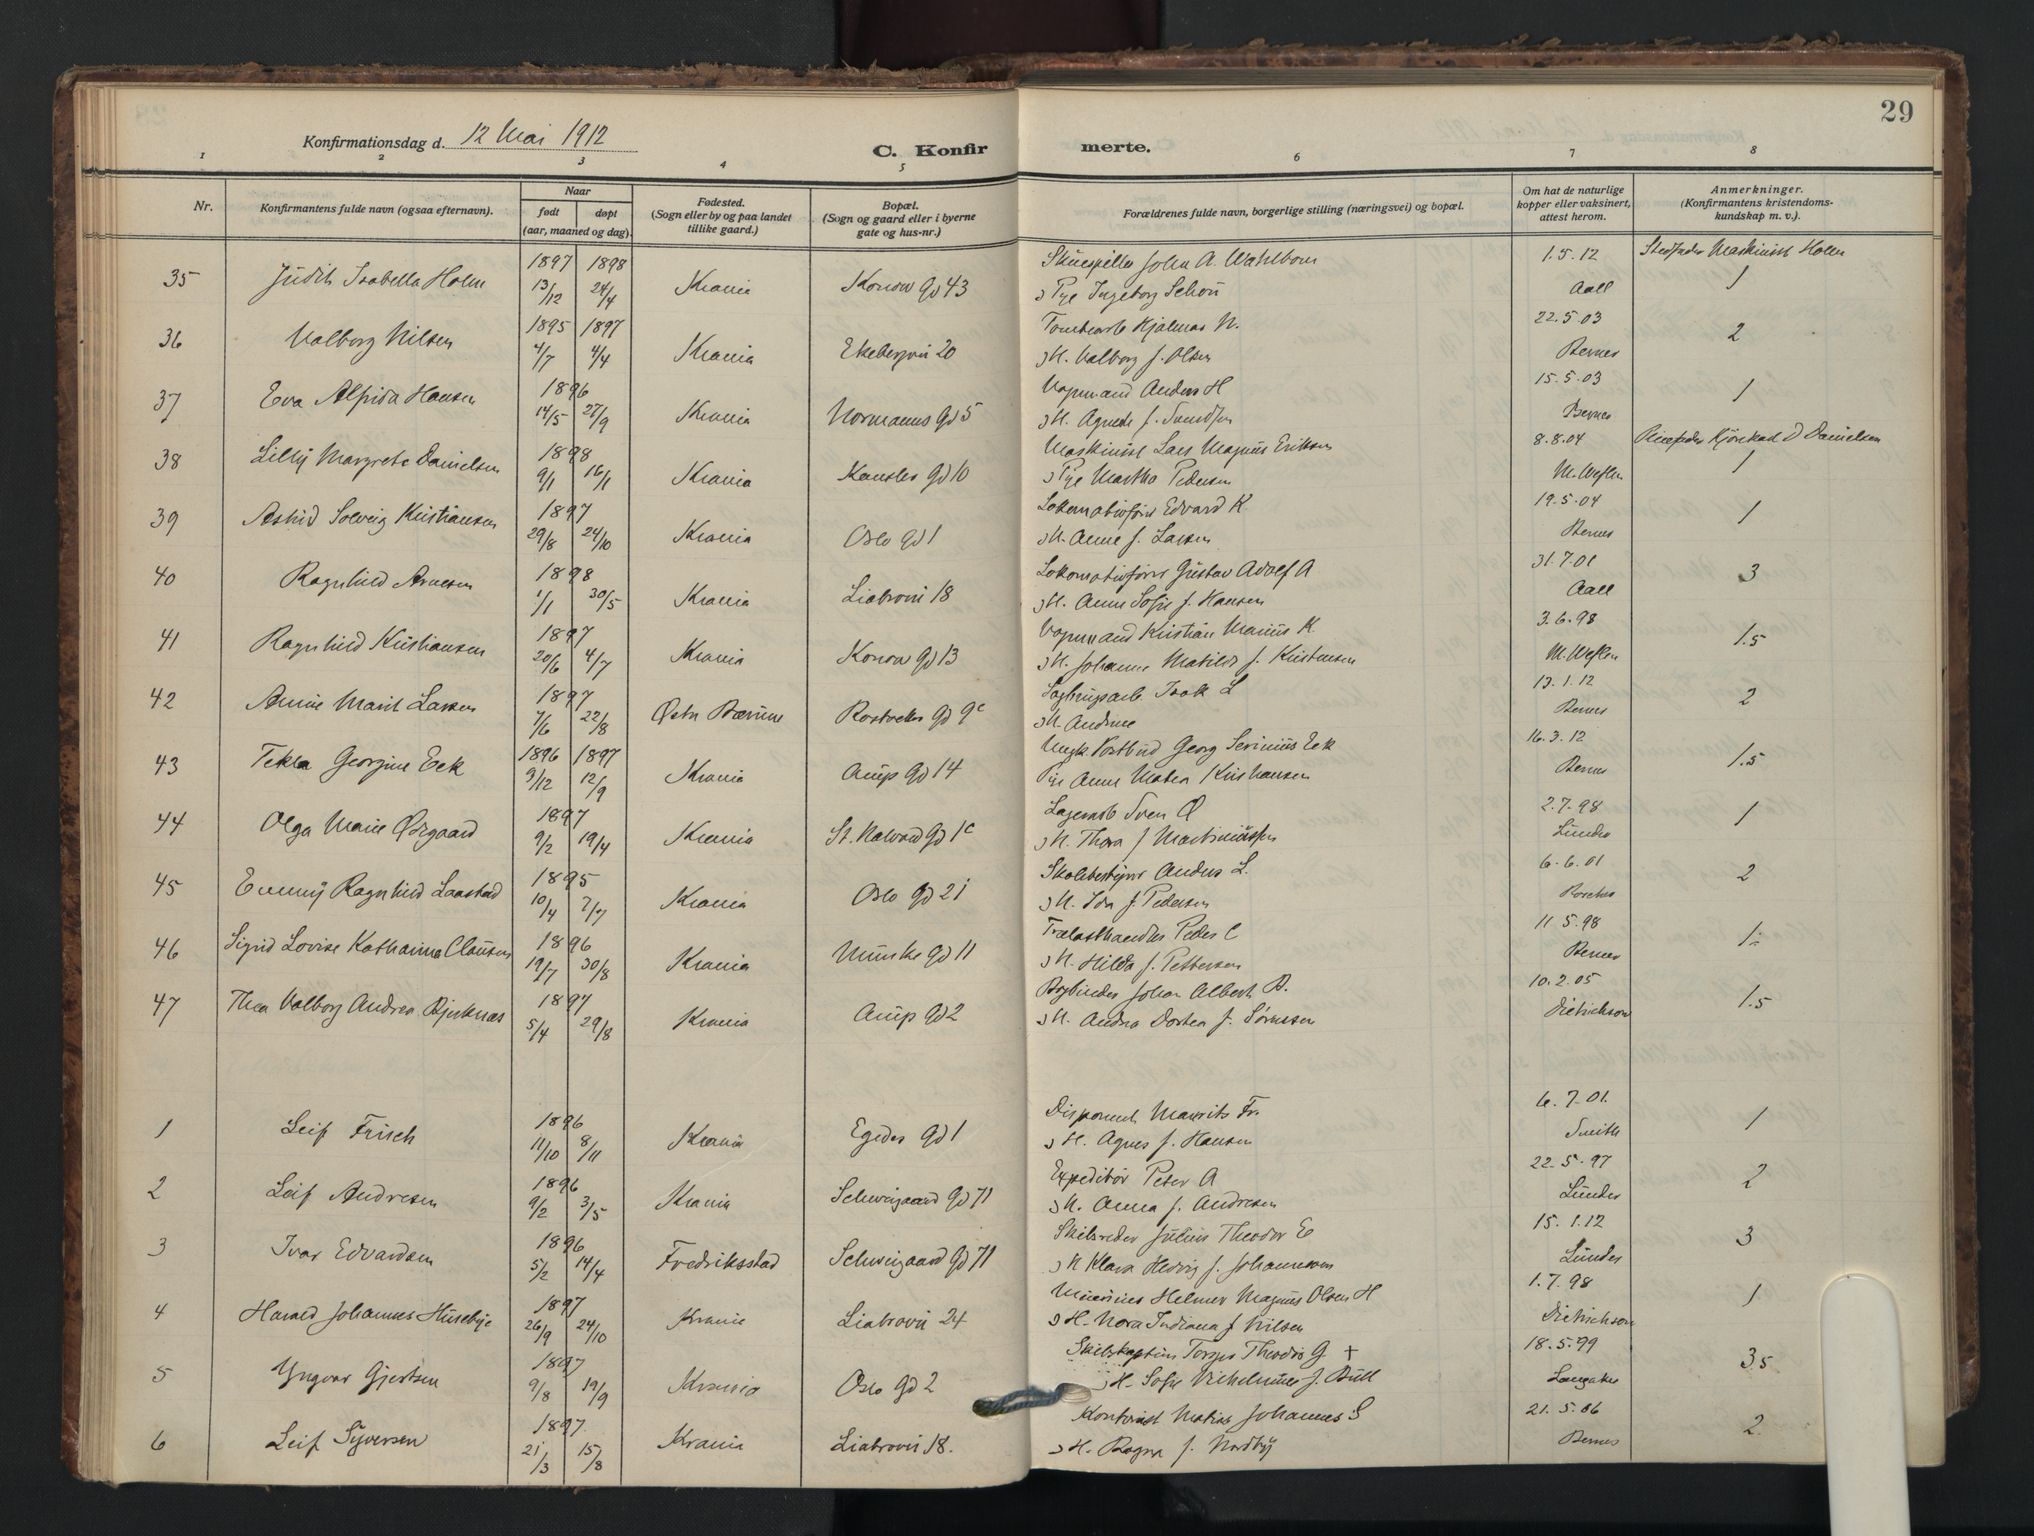 29
Konfirmationsdag d. 12 Mai 1912
C. Konfirmerte.
1 2 3 4 5 6 7 8
Nr.
Konfirmantens fulde navn (ogsaa efternavn).
Naar
født døpt
(aar, maaned og dag).
Fødested.
(Sogn eller by og paa landet
tillike gaard.)
Bopæl.
(Sogn og gaard eller i byerne
gate og hus-nr.)
Forældrenes fulde navn, borgerlige stilling (næringsvei) og bopæl.
Om hat de naturlige
kopper eller vaksinert,
attest herom.
Anmerkninger.
(Konfirmantens kristendoms-
kundskap m. v.).
1897 1898 Skuespiller John A. Wahlbom 1.5.12 Stedfader Maskinist Holm
35 Judith Isabella Holm 13/12 24/4 Krania Konow gd 43 Pge Ingeborg Schou Aall 1
1895 1897 Hjalmar N. 22.5.03
36 Valborg Nilsen 4/7 4/4 Krania Ekebergvn 20 H. Valborg f. Olsen Bernes 2
1896 Vognmand Anders H 15.5.03
37 Eva Alfida Hansen 14/5 27/9 Krania Normanns gd 5 H. Agnete f. Svendsen Bernes 1
1898 Maskinist Lars Magnus Eriksen 8.8.04 Pleiefader Kjørekarl D Danielsen
38 Lilly Margrete Danielsen 9/1 16/1 Krania Kansler gd 10 Pge Martha Pedersen 1
1897 Lokomotivfører Edvard K. 19.5.04
39 Astrid Solveig Kristiansen 29/8 24/10 Krania Oslo gd 1 H. Anne f. Larsen Bernes 1
1898 Lokomotivfører Gustav Adolf A 31.7.01
40 Ragnhild Arnesen 1/1 30/5 Krania Liabrovn 18 H. Anne Sofie f. Hansen Aall 3
1897 Vognmand Kristian Marius K. 3.6.98
41 Ragnhild Kristiansen 20/6 4/7 Krania Konow gd 13 H. Johanne Matilde f. Kristensen 1.5
1897 Isak L 13.1.12
42 Anne Marit Larsen 7/6 22/8 Østre Bærum gd 9c H. Andrine Bernes 2
1896 1897 Ungk. Postbud Georg Serinius Eek 16.3.12
43 Tekla Georgine Eek 9/12 12/9 Krania Arups gd 14 Pge Anne Matea Kristiansen Bernes 1.5
1897 Lagerarb Sven Ø 2.7.98
44 Olga Marie Ødegaard 9/2 19/4 Krania St. Halvard gd 1c H. Thora f Martiniussen Lunder 1
1895 Skolebestyrer Anders L. 6.6.01
45 Emmy Ragnhild Laastad 10/4 7/7 Krania Oslo gd 21 H. Ida f Pedersen 2
1896 Trælasthandler Peder C 11.5.98
46 Sigrid Lovise Katharina Clausen 19/7 30/8 Krania Munke gd 11 H. Hilda f. Pettersen Berner 1
1897 Johan Albert B. 10.2.05
47 Thea Valborg Andrea Bjerknæs 5/4 29/8 Krania Arups gd 2 H. Andrea Dortea f. Sørensen Dietrichson 1.5
1896 Disponent Maurits Fr. 6.7.01
1 Leif Frisch 11/10 8/11 Krania Egedes gd 1 H. Agnes f. Hansen Smith 1
1896 Expeditør Peter A 22.5.97
2 Leif Andresen 9/2 3/5 Krania Schweigaard gd 71 H. Anna f. Andresen Lunder 2
1896 Skibsreder Julius Theodor E 15.1.12
3 Ivar Edvardsen 5/2 14/4 Fredriksstad Schweigaard gd 71 H Klara Hedvig f. Johannesen Lunder 3
1897 Helmer Magnus Olsen H 1.7.98
4 Harald Johannes Husebye 26/9 24/10 Krania Liabrovn 24 H. Nora Indiana f Nilsen Dietrichson 1
1897 Skibskaptein Torger Theodor G + 18.5.99
5 Yngvar Gjertsen 9/8 19/9 Krania Oslo gd 2 H. Sofie Vilhelmine f. Bull Langaker 3.5
1897 Kontorist Matias Johannes S 21.5.06
6 Leif Syversen 21/3 15/8 Krania Liabrovn 18. H. Ragna f. Nordby Bernes 2.